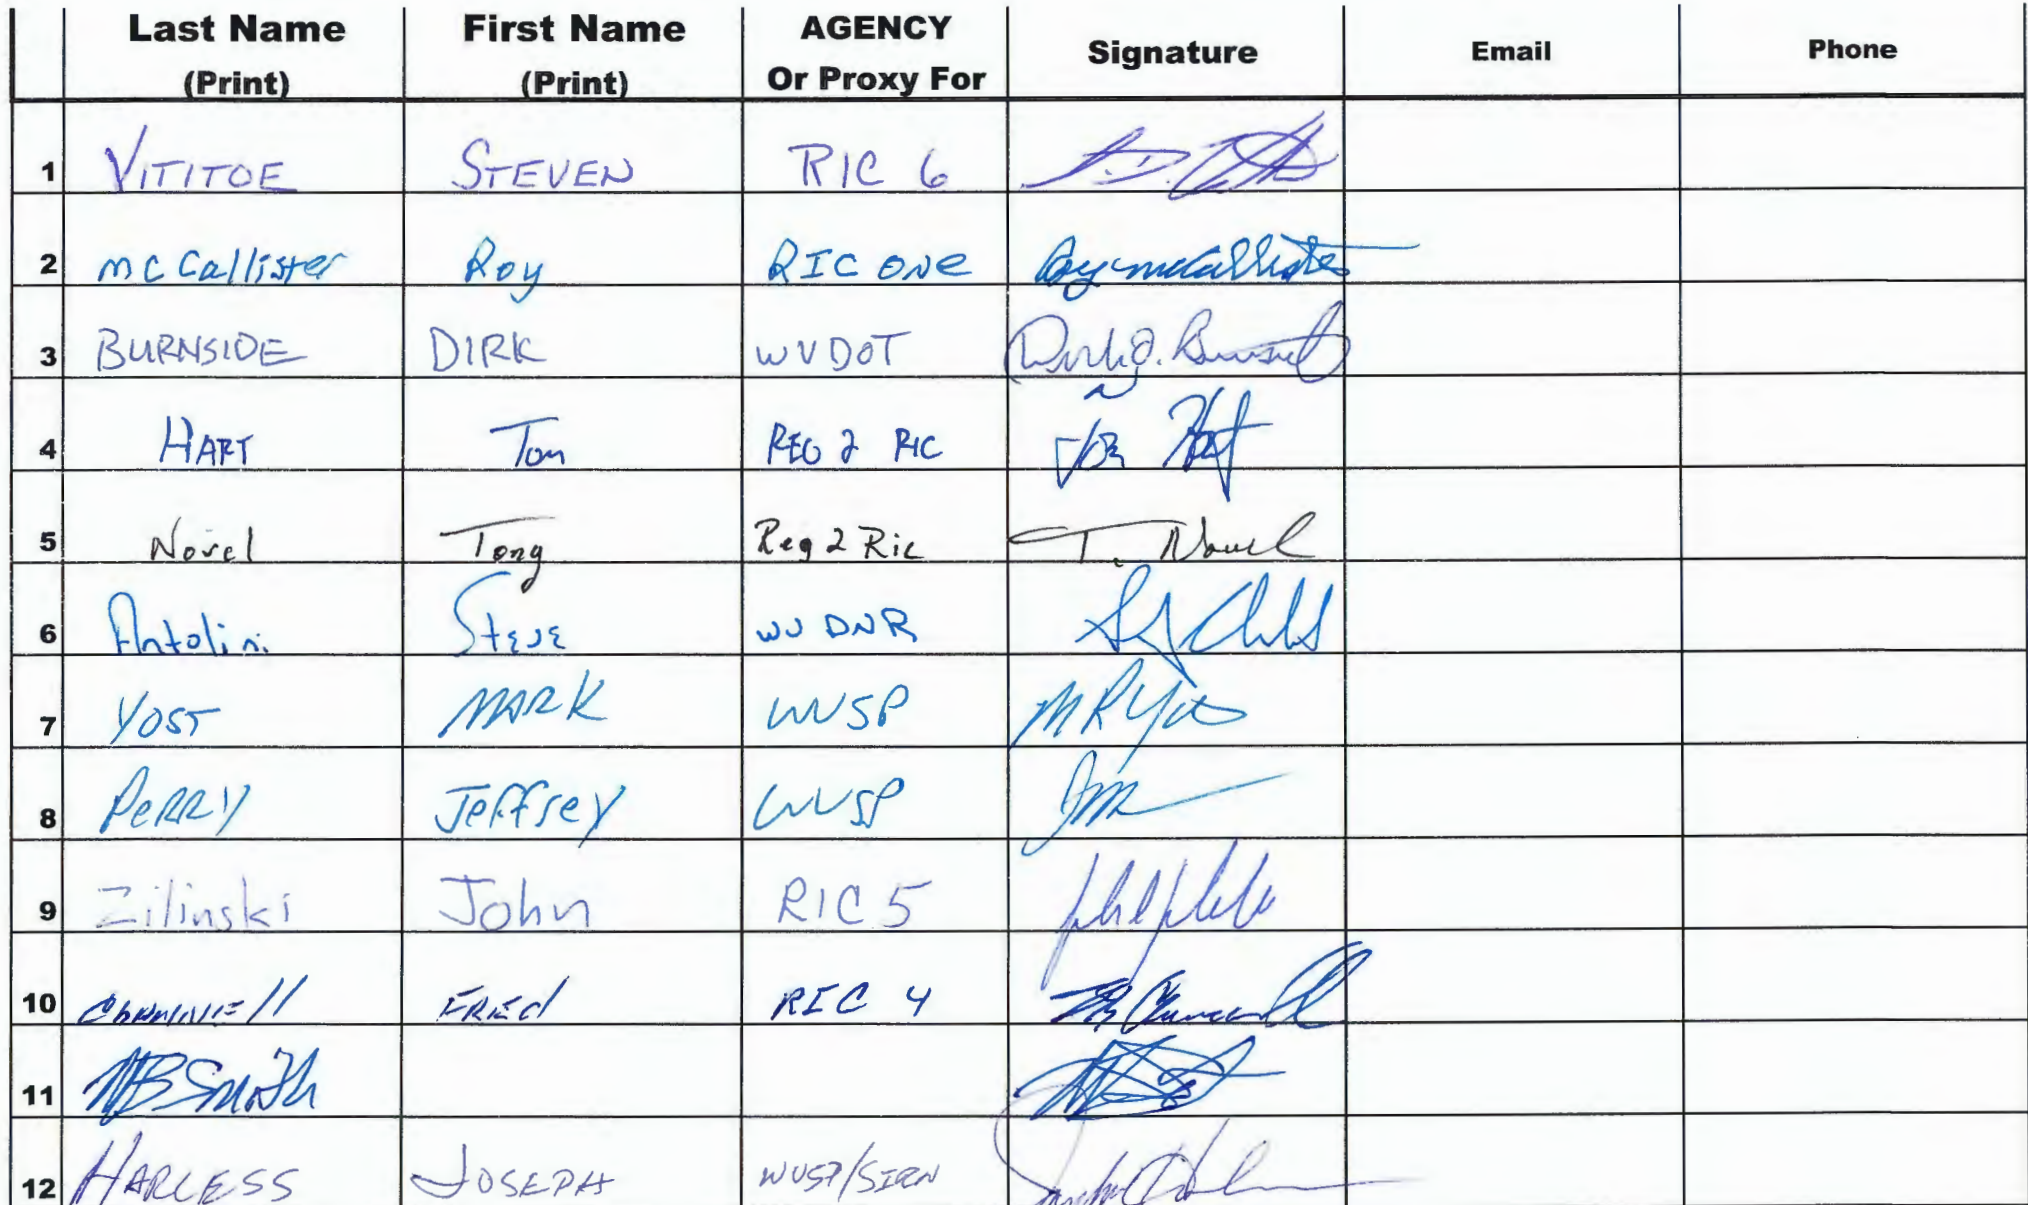 Last Name First Name AGENCY Signature Email Phone
(Print) (Print) Or Proxy For
1 VITITOE STEVEN RIC 6
2 McCallister Roy RIC ONE Roy McCallister
3 BURNSIDE DIRK WVDOT
4 HART Tom REG 2 RIC Tom Hart
5 Novel Tony Reg 2 Ric T. Novel
6 Antolini Steve WV DNR
7 YOST MARK WVSP
8 PERRY Jeffrey WVSP
9 Zilinski John RIC 5
10 Channell FRED RIC 4
11 MB Smith
12 HARLESS JOSEPH WVSP/SIRN